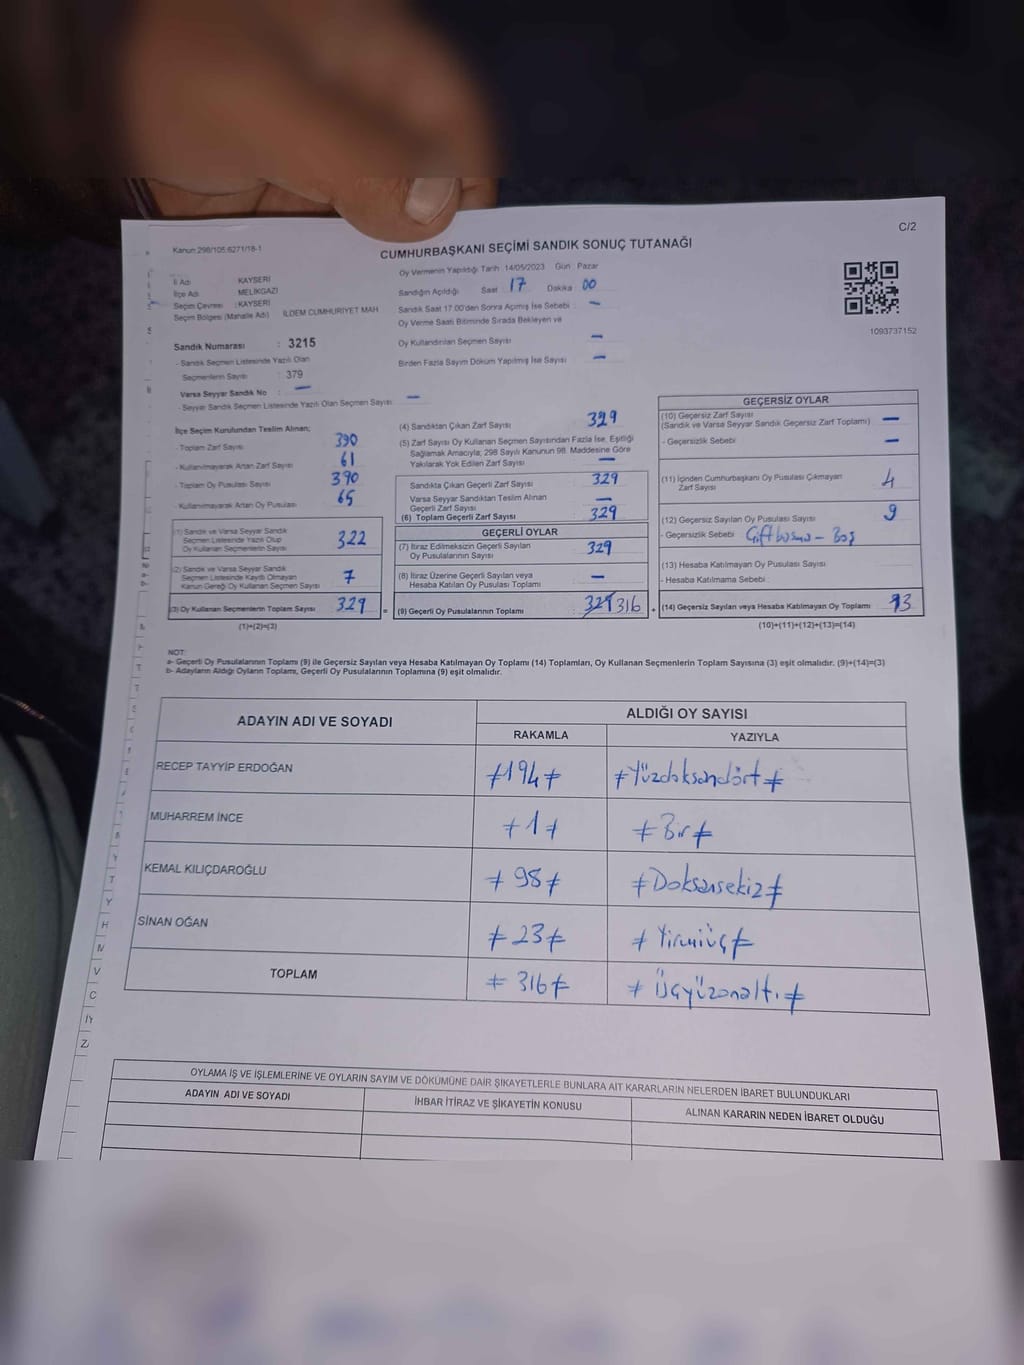 C/2
Kanun 298/105,6271/18-1
CUMHURBAŞKANI SEÇİMİ SANDIK SONUÇ TUTANAĞI
İl Adı KAYSERİ
İlçe Adı MELİKGAZİ
Seçim Çevresi : KAYSERİ
Seçim Bölgesi (Mahalle Adı) İLDEM CUMHURİYET MAH
Sandık Numarası : 3215
- Sandık Seçmen Listesinde Yazılı Olan
Seçmenlerin Sayısı : 379
Varsa Seyyar Sandık No : —
- Seyyar Sandık Seçmen Listesinde Yazılı Olan Seçmen Sayısı —
Oy Vermenin Yapıldığı Tarih 14/05/2023 Gün Pazar
Sandığın Açıldığı Saat 17 Dakika 00
Sandık Saat 17.00'den Sonra Açılmış İse Sebebi : —
Oy Verme Saati Bitiminde Sırada Bekleyen ve
Oy Kullandırılan Seçmen Sayısı —
Birden Fazla Sayım Döküm Yapılmış İse Sayısı —
1093737152
İlçe Seçim Kurulundan Teslim Alınan;
- Toplam Zarf Sayısı 390
- Kullanılmayarak Artan Zarf Sayısı 61
- Toplam Oy Pusulası Sayısı 390
- Kullanılmayarak Artan Oy Pusulası 65
(1) Sandık ve Varsa Seyyar Sandık
Seçmen Listesinde Yazılı Olup
Oy Kullanan Seçmenlerin Sayısı 322
(2) Sandık ve Varsa Seyyar Sandık
Seçmen Listesinde Kayıtlı Olmayan
Kanun Gereği Oy Kullanan Seçmen Sayısı 7
(3) Oy Kullanan Seçmenlerin Toplam Sayısı 329 =
(1)+(2)=(3)
(4) Sandıktan Çıkan Zarf Sayısı 329
(5) Zarf Sayısı Oy Kullanan Seçmen Sayısından Fazla İse, Eşitliği
Sağlamak Amacıyla; 298 Sayılı Kanunun 98. Maddesine Göre
Yakılarak Yok Edilen Zarf Sayısı —
Sandıkta Çıkan Geçerli Zarf Sayısı 329
Varsa Seyyar Sandıktan Teslim Alınan
Geçerli Zarf Sayısı —
(6) Toplam Geçerli Zarf Sayısı 329
GEÇERLİ OYLAR
(7) İtiraz Edilmeksizin Geçerli Sayılan
Oy Pusulalarının Sayısı 329
(8) İtiraz Üzerine Geçerli Sayılan veya
Hesaba Katılan Oy Pusulası Toplamı —
(9) Geçerli Oy Pusulalarının Toplamı 316 +
GEÇERSİZ OYLAR
(10) Geçersiz Zarf Sayısı
(Sandık ve Varsa Seyyar Sandık Geçersiz Zarf Toplamı) —
- Geçersizlik Sebebi —
(11) İçinden Cumhurbaşkanı Oy Pusulası Çıkmayan
Zarf Sayısı 4
(12) Geçersiz Sayılan Oy Pusulası Sayısı 9
- Geçersizlik Sebebi Çift basma - Boş
(13) Hesaba Katılmayan Oy Pusulası Sayısı
- Hesaba Katılmama Sebebi
(14) Geçersiz Sayılan veya Hesaba Katılmayan Oy Toplamı 13
(10)+(11)+(12)+(13)=(14)
NOT:
a- Geçerli Oy Pusulalarının Toplamı (9) ile Geçersiz Sayılan veya Hesaba Katılmayan Oy Toplamı (14) Toplamları, Oy Kullanan Seçmenlerin Toplam Sayısına (3) eşit olmalıdır. (9)+(14)=(3)
b- Adayların Aldığı Oyların Toplamı, Geçerli Oy Pusulalarının Toplamına (9) eşit olmalıdır.
ADAYIN ADI VE SOYADI ALDIĞI OY SAYISI
RAKAMLA YAZIYLA
RECEP TAYYİP ERDOĞAN ≠194≠ ≠Yüzdoksandört≠
MUHARREM İNCE +1+ ≠Bir≠
KEMAL KILIÇDAROĞLU +98≠ ≠Doksansekiz≠
SİNAN OĞAN ≠23≠ ≠Yirmiüç≠
TOPLAM ≠316≠ ≠Üçyüzonaltı≠
OYLAMA İŞ VE İŞLEMLERİNE VE OYLARIN SAYIM VE DÖKÜMÜNE DAİR ŞİKAYETLERLE BUNLARA AİT KARARLARIN NELERDEN İBARET BULUNDUKLARI
ADAYIN ADI VE SOYADI İHBAR İTİRAZ VE ŞİKAYETİN KONUSU ALINAN KARARIN NEDEN İBARET OLDUĞU